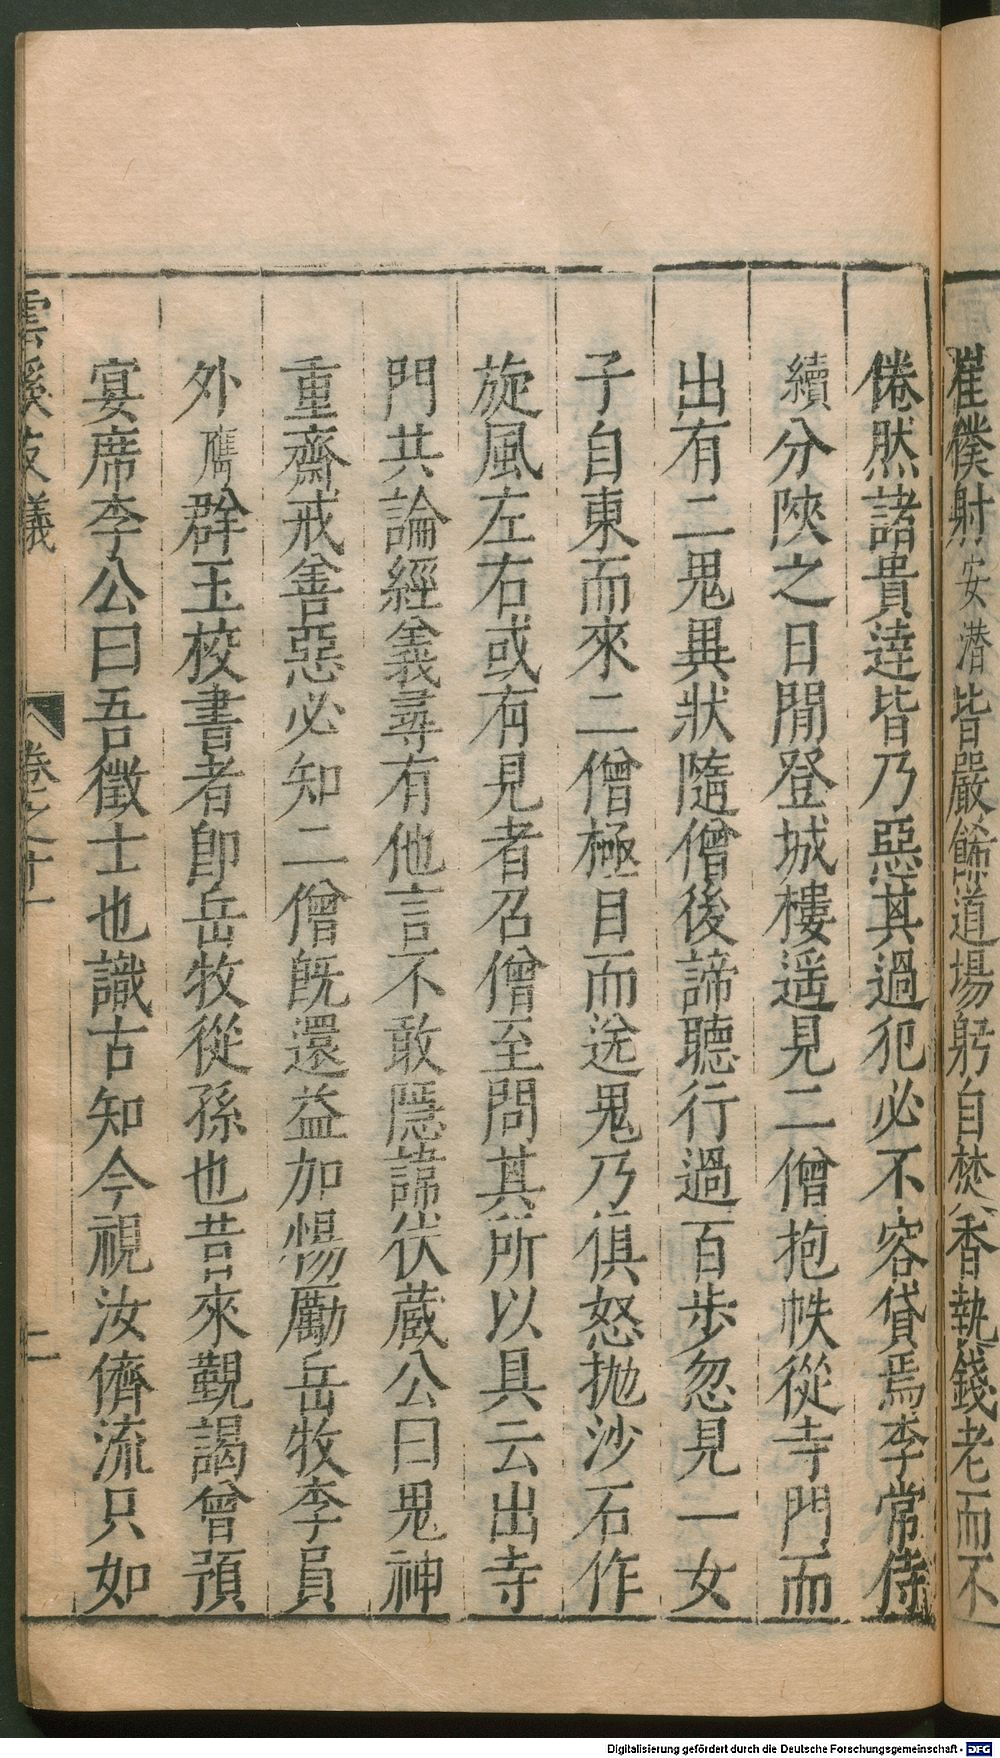 崔僕射安潛皆嚴餙道場躬自焚香執錢老而不
倦然諸貴達皆乃惡其過犯必不容貸焉李常侍
續分陜之日閒登城樓遥見二僧抱帙從寺門而
出有二鬼異狀隨僧後諦聽行過百步忽見一女
子自東而來二僧極目而送鬼乃俱怒抛沙石作
旋風左右或有見者召僧至問其所以具云出寺
門共論經義尋有他言不敢隱諱伏蔵公曰鬼神
重齋戒善惡必知二僧旣還益加惕勵岳牧李員
外膺群玉校書者卽岳牧從孫也昔來覲謁曾預
宴席李公曰吾徵士也識古知今視汝儕流只如
雲溪友議 卷之十一 二
Digitalisierung gefördert durch die Deutsche Forschungsgemeinschaft - DFG